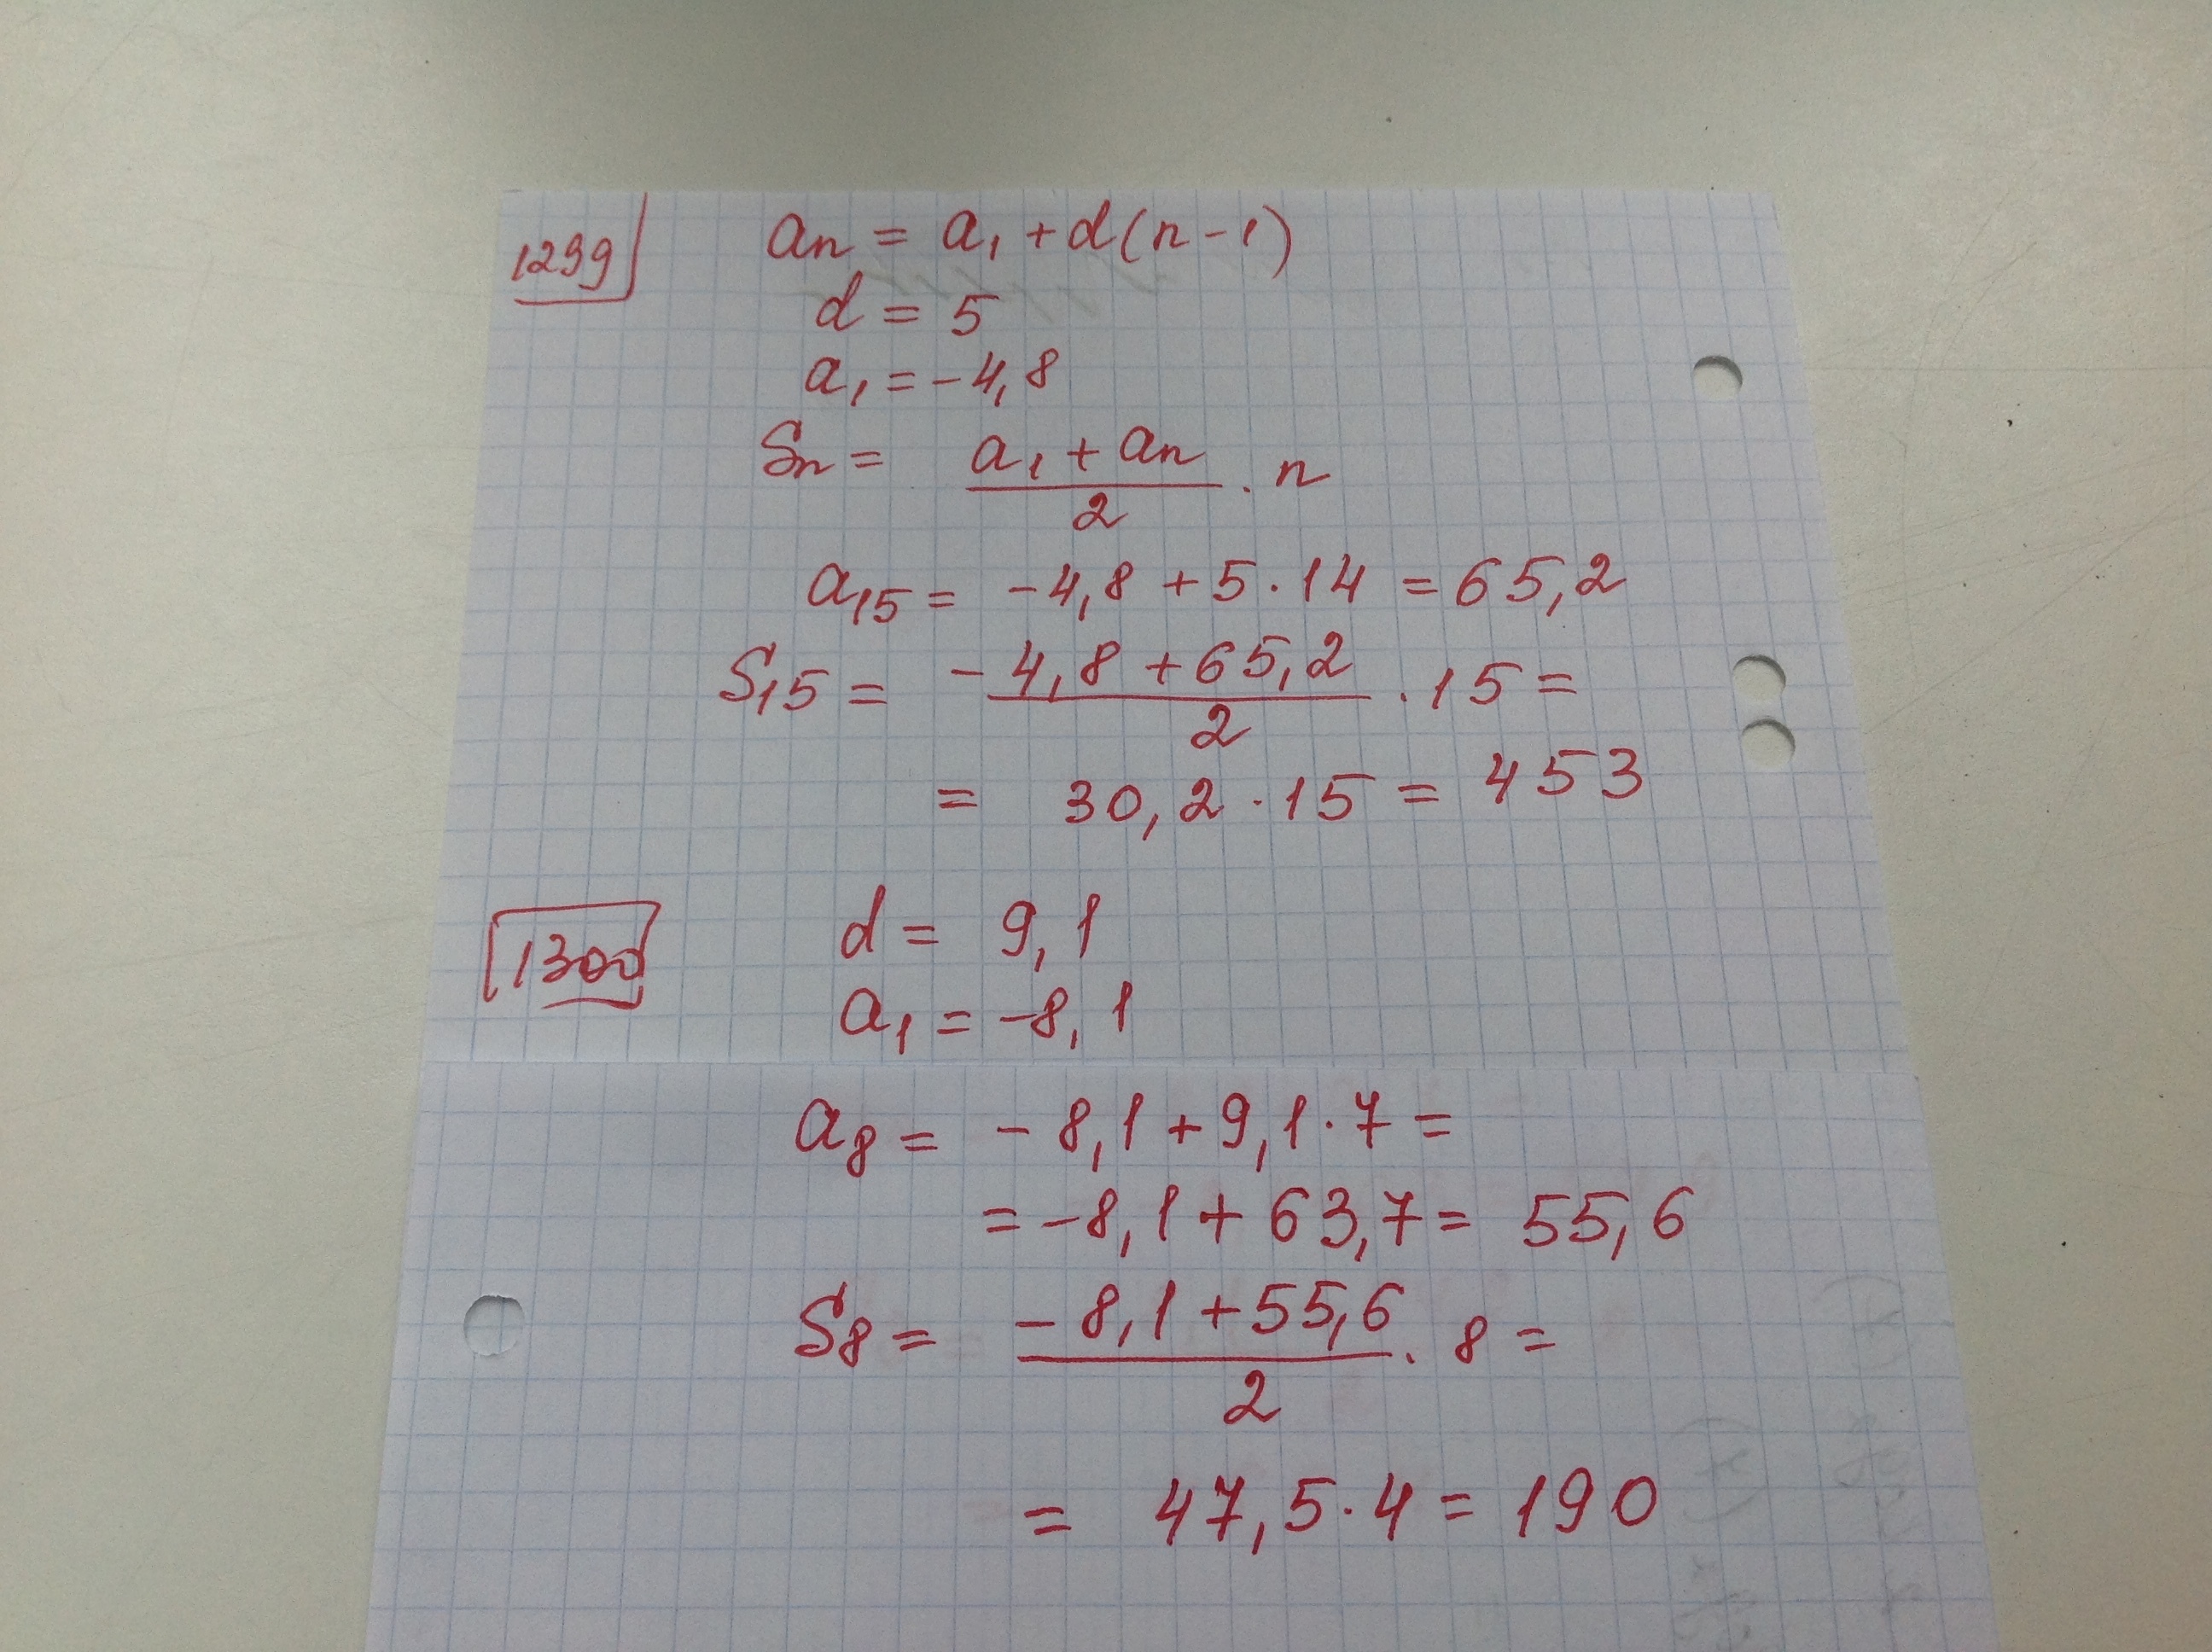 1299
an = a₁ + d(n-1)
d = 5
a₁ = -4,8
Sn = (a₁ + an)/2 · n
a₁₅ = -4,8 + 5·14 = 65,2
S₁₅ = (-4,8 + 65,2)/2 · 15 =
= 30,2 · 15 = 453
1300
d = 9,1
a₁ = -8,1
a₈ = -8,1 + 9,1·7 =
= -8,1 + 63,7 = 55,6
S₈ = (-8,1 + 55,6)/2 · 8 =
= 47,5·4 = 190